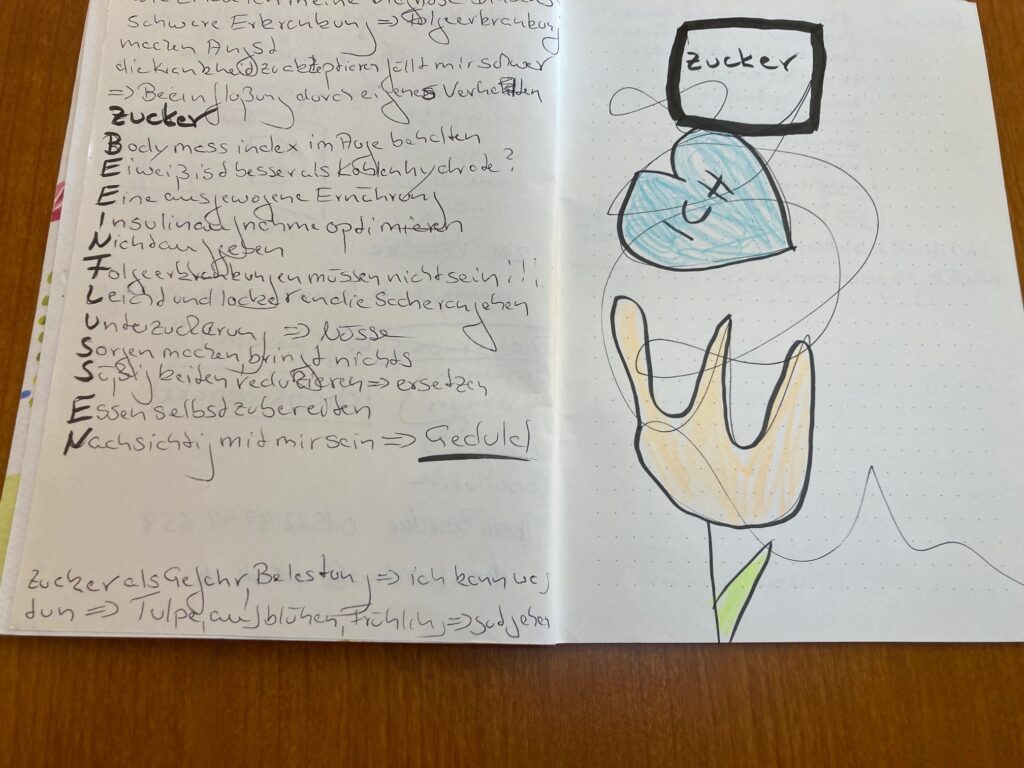 Schwere Erkrankung => Folgeerkrankung
machen Angst
die Krankheid zu akzeptieren fällt mir schwer
=> Beeinflußung durch eigenes Verhalten
Zucker
Body mass index im Auge behalten
Eiweiß isd besser als Kohlenhydrade?
Eine ausgewogene Ernährung
Insulinaufnahme optimieren
Nichd aufgeben
Folgeerkrankungen müssen nicht sein!!!
Leichd und lockerer an die Sache rangehen
Unterzuckerung => Nüsse
Sorgen machen, bringt nichts
Süßigkeiten reduzieren => ersetzen
Essen selbsd zubereiten
Nachsichtig mit mir sein => Geduld
Zucker als Gefahr, Belastung => ich kann was
dun => Tulpe, aufblühen, Frühling => gud gehen
zucker